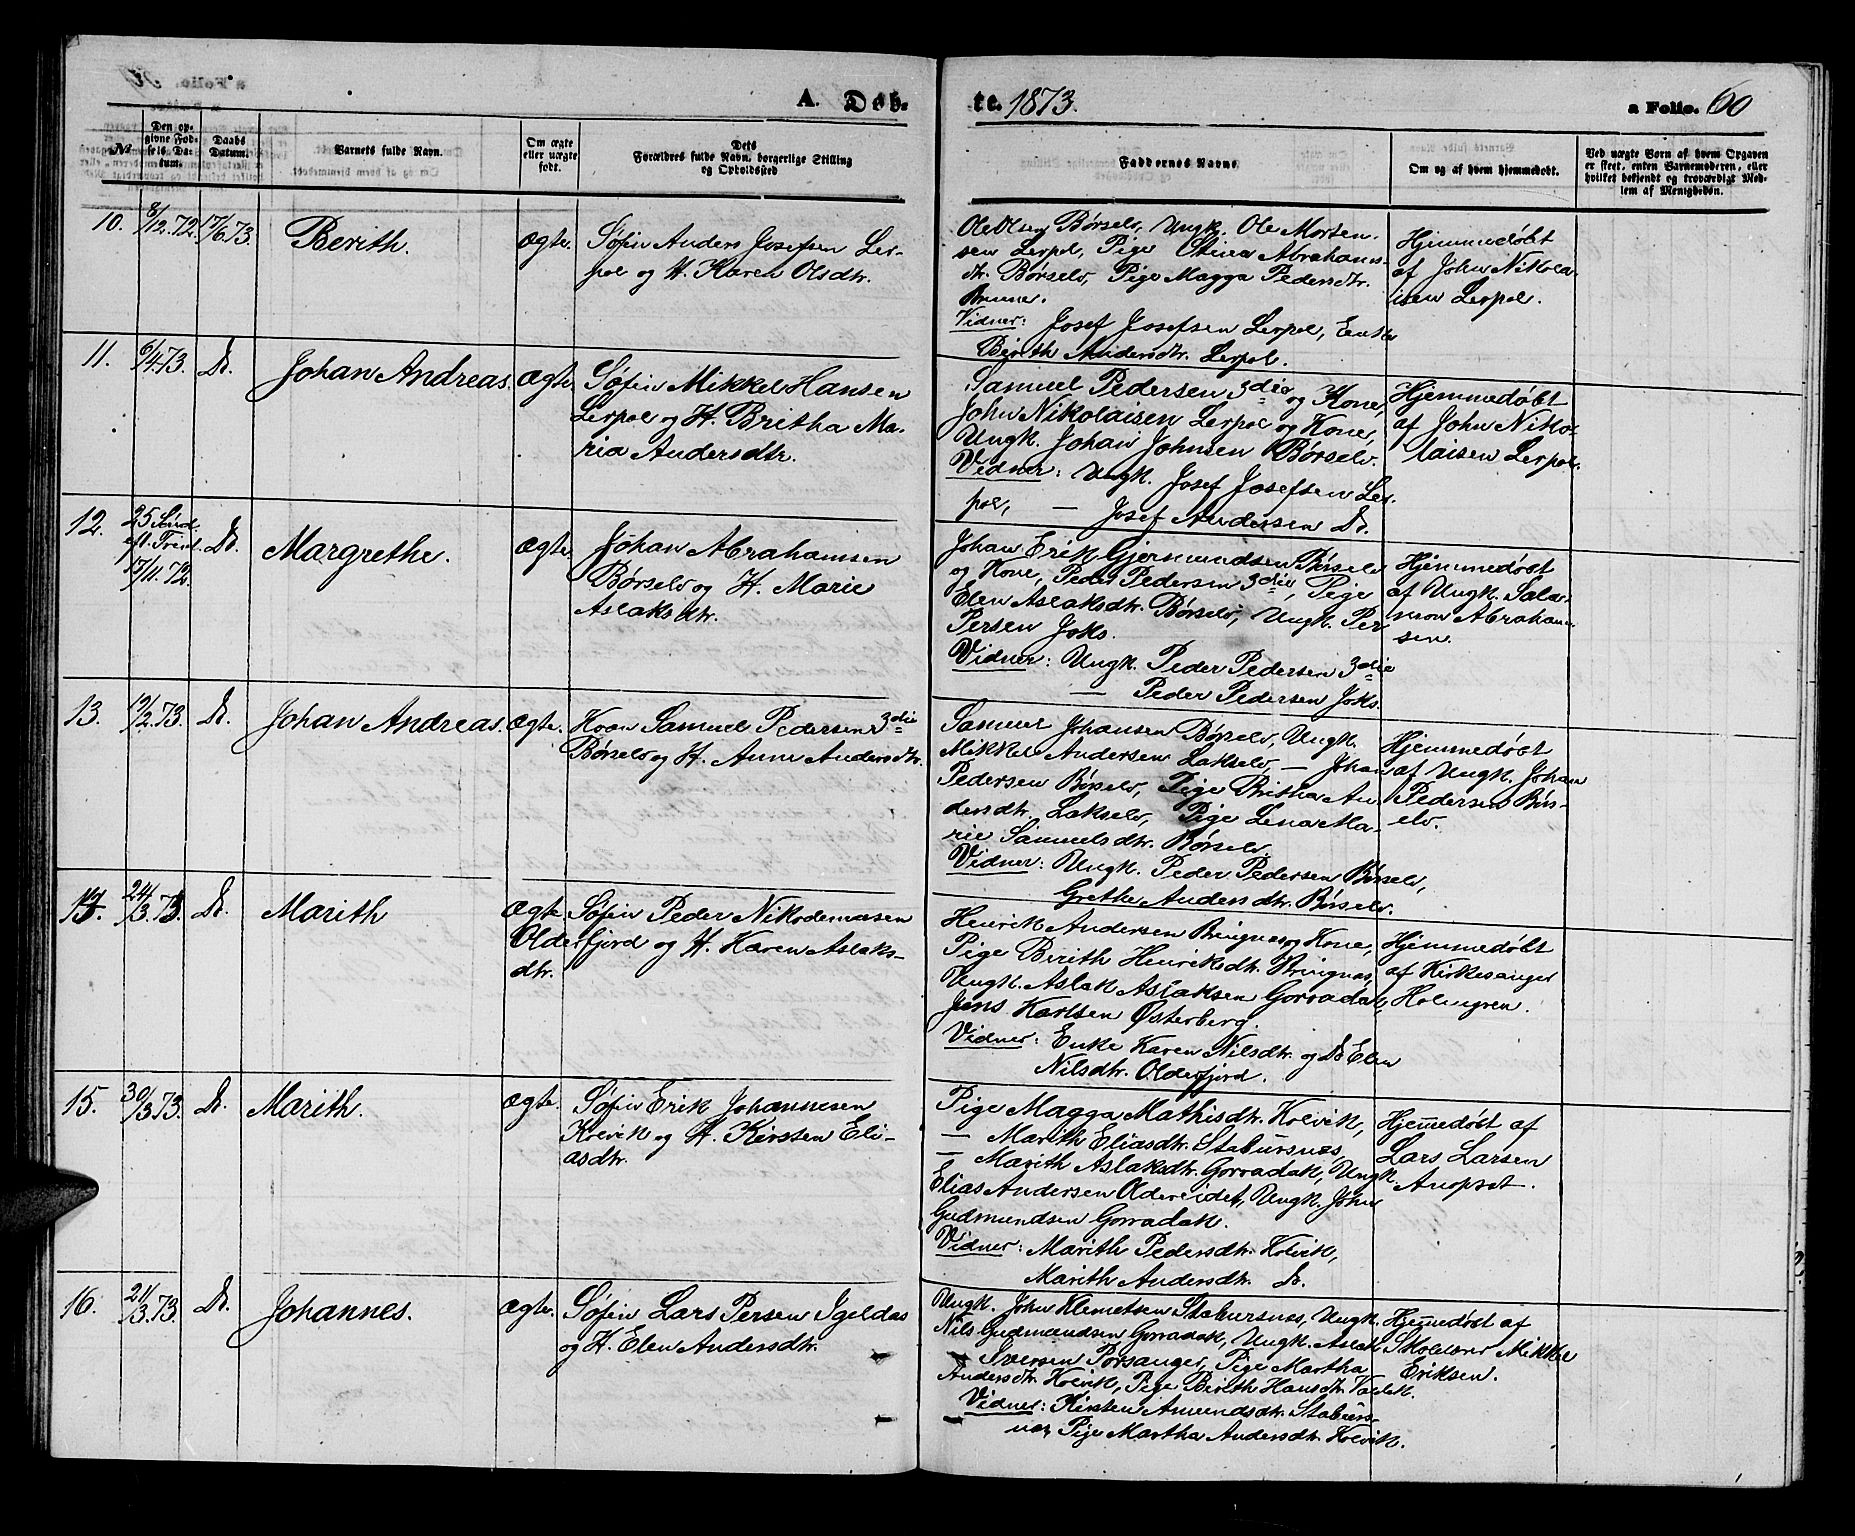 A. Døb-
te. 1873.
a Folio. 60
№
Den op-
givne Fød-
sels Da-
tum.
Daabs
Datum.
Barnets fulde Navn.
Om ægte
eller uægte
født.
Dets
Forældres fulde Navn, borgerlige Stilling
og Opholdssted
Faddernes Navne
Om og af hvem hjemmedøbt.
Ved uægte Børn af hvem Opgaven
er skeet, enten Barnemoderen, eller
hvilket bekjendt og troværdigt Med-
lem af Menigheden.
10.
8/12.72.
17/6.73.
Berith.
Ægte.
Søfin Anders Josefsen Ler-
pol og H. Karen Olsdtr.
Ole Olsen Børselv, Ungk. Ole Morten-
sen Lerpol, Pige Stina Abrahams-
dtr. Børselv, Pige Magga Pedersdtr.
Brenner.
Vidner: Josef Josefsen Lerpol, Enke
Birith Andersdtr. Lerpol.
Hjemmedøbt
af John Nikola-
isen Lerpol.
11.
6/4.73.
Do.
Johan Andreas.
Ægte
Søfin Mikkel Hansen
Lerpol og H. Britha Ma-
ria Andersdtr.
Samuel Pedersen 3die og Kone,
John Nikolaisen Lerpol og Kone,
Ungk. Johan Johnsen Børselv.
Vidner: Ungk. Josef Josefsen Ler-
pol, — Josef Andersen Do.
Hjemmedøbt
af John Niko-
laisen Lerpol.
12.
25 Sønd.
eft. Trenit.
17/11.72.
Do.
Margrethe.
Ægte.
Johan Abrahamsen
Børselv og H. Marie
Aslaksdtr.
Johan Erik Gjermundsen Børselv
og Kone, Peder Pedersen 3die, Pige
Elen Aslaksdtr. Børselv, Ungk. Per
Persen Joks.
Vidner: Ungk. Peder Pedersen 3die
— Peder Pedersen Joks.
Hjemmedøbt
af Ungk. Salo-
mon Abraham-
sen.
13.
12/2.73.
Do.
Johan Andreas.
Ægte.
Kvæn Samuel Pedersen 3die
Børselv og H. Anne Andersdtr.
Samuel Johansen Børselv, Ungk.
Mikkel Andersen Lakselv, — Johan
Pedersen Børselv, Pige Britha An-
dersdtr. Lakselv, Pige Lena Ma-
rie Samuelsdtr. Børselv.
Vidner: Ungk. Peder Pedersen Børselv,
Grethe Andersdtr. Børselv.
Hjemmedøbt
af Ungk. Johan
Pedersen Børs-
elv.
14.
24/3.73.
Do.
Marith
Ægte.
Søfin Peder Nikodemusen
Olderfjord og H. Karen Aslaks-
dtr.
Henrik Andersen Bringnæs og Kone,
Pige Birith Henriksdtr. Bringnæs,
Ungk. Aslak Aslaksen Gorradak,
Jens Karlsen Østerberg.
Vidner: Enke Karen Nilsdtr. og Do Elen
Nilsdtr. Olderfjord.
Hjemmedøbt
af Kirkesanger
Holmgren.
15.
30/3.73.
Do.
Marith.
Ægte.
Søfin Erik Johannesen
Kolvik og H. Kirsten Eli-
asdtr.
Pige Magga Mathisdtr. Kolvik,
— Marith Eliasdtr. Stabursnæs,
— Marith Aslaksdtr. Gorradak, Ungk.
Elias Andersen Oldereidet, Ungk. John
Gudmundsen Gorradak.
Vidner: Marith Pedersdtr. Kolvik,
Marith Andersdtr. Do.
Hjem̅edøbt af
Lars Larsen
Anopset.
16.
21/3.73.
Do.
Johannes.
Ægte.
Søfin Lars Persen Igeldas
og H. Elen Andersdtr.
Ungk. John Klemetsen Stabursnæs, Ungk.
Nils Gudmundsen Gorradak, Ungk. Aslak
Iversen Porsanger, Pige Martha
Andersdtr. Kolvik, Pige Birith Hansdtr.
Vidner: Kirsten Amundsdtr. Staburs-
næs, Pige Martha Andersdtr. Kolvik.
Hjem̅edøbt af
Skolelærer Mikkel
Eriksen.